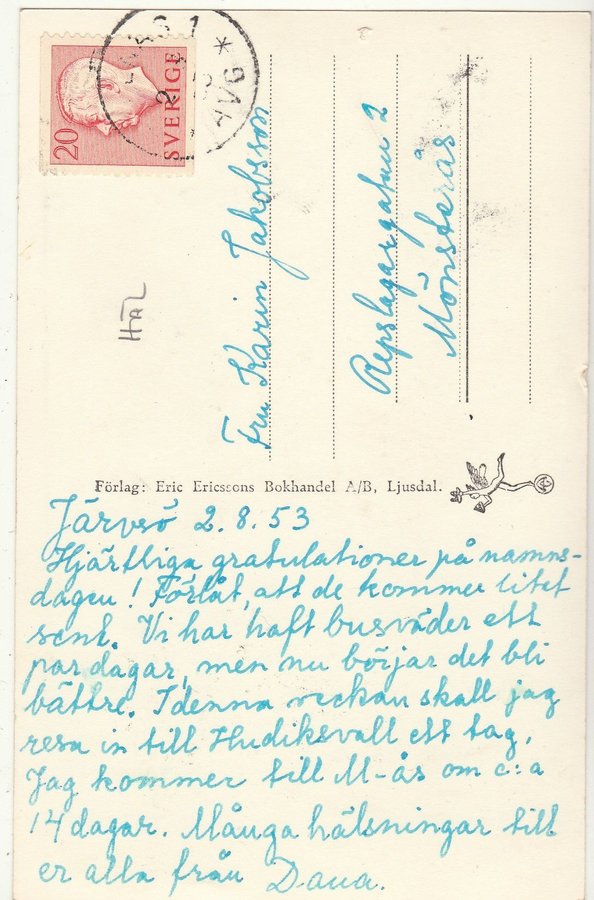 20
SVERIGE
Fru Karin Jakobsson
Repslagargatan 2
Mönsterås
HÄL
Förlag: Eric Ericssons Bokhandel A/B, Ljusdal.
Järvsö 2.8.53
Hjärtliga gratulationer på namns-
dagen! Förlåt, att de kommer litet
sent. Vi har haft busväder ett
par dagar, men nu börjar det bli
bättre. I denna veckan skall jag
resa in till Hudiksvall ett tag.
Jag kommer till M-ås om c:a
14 dagar. Många hälsningar till
er alla från Dana.